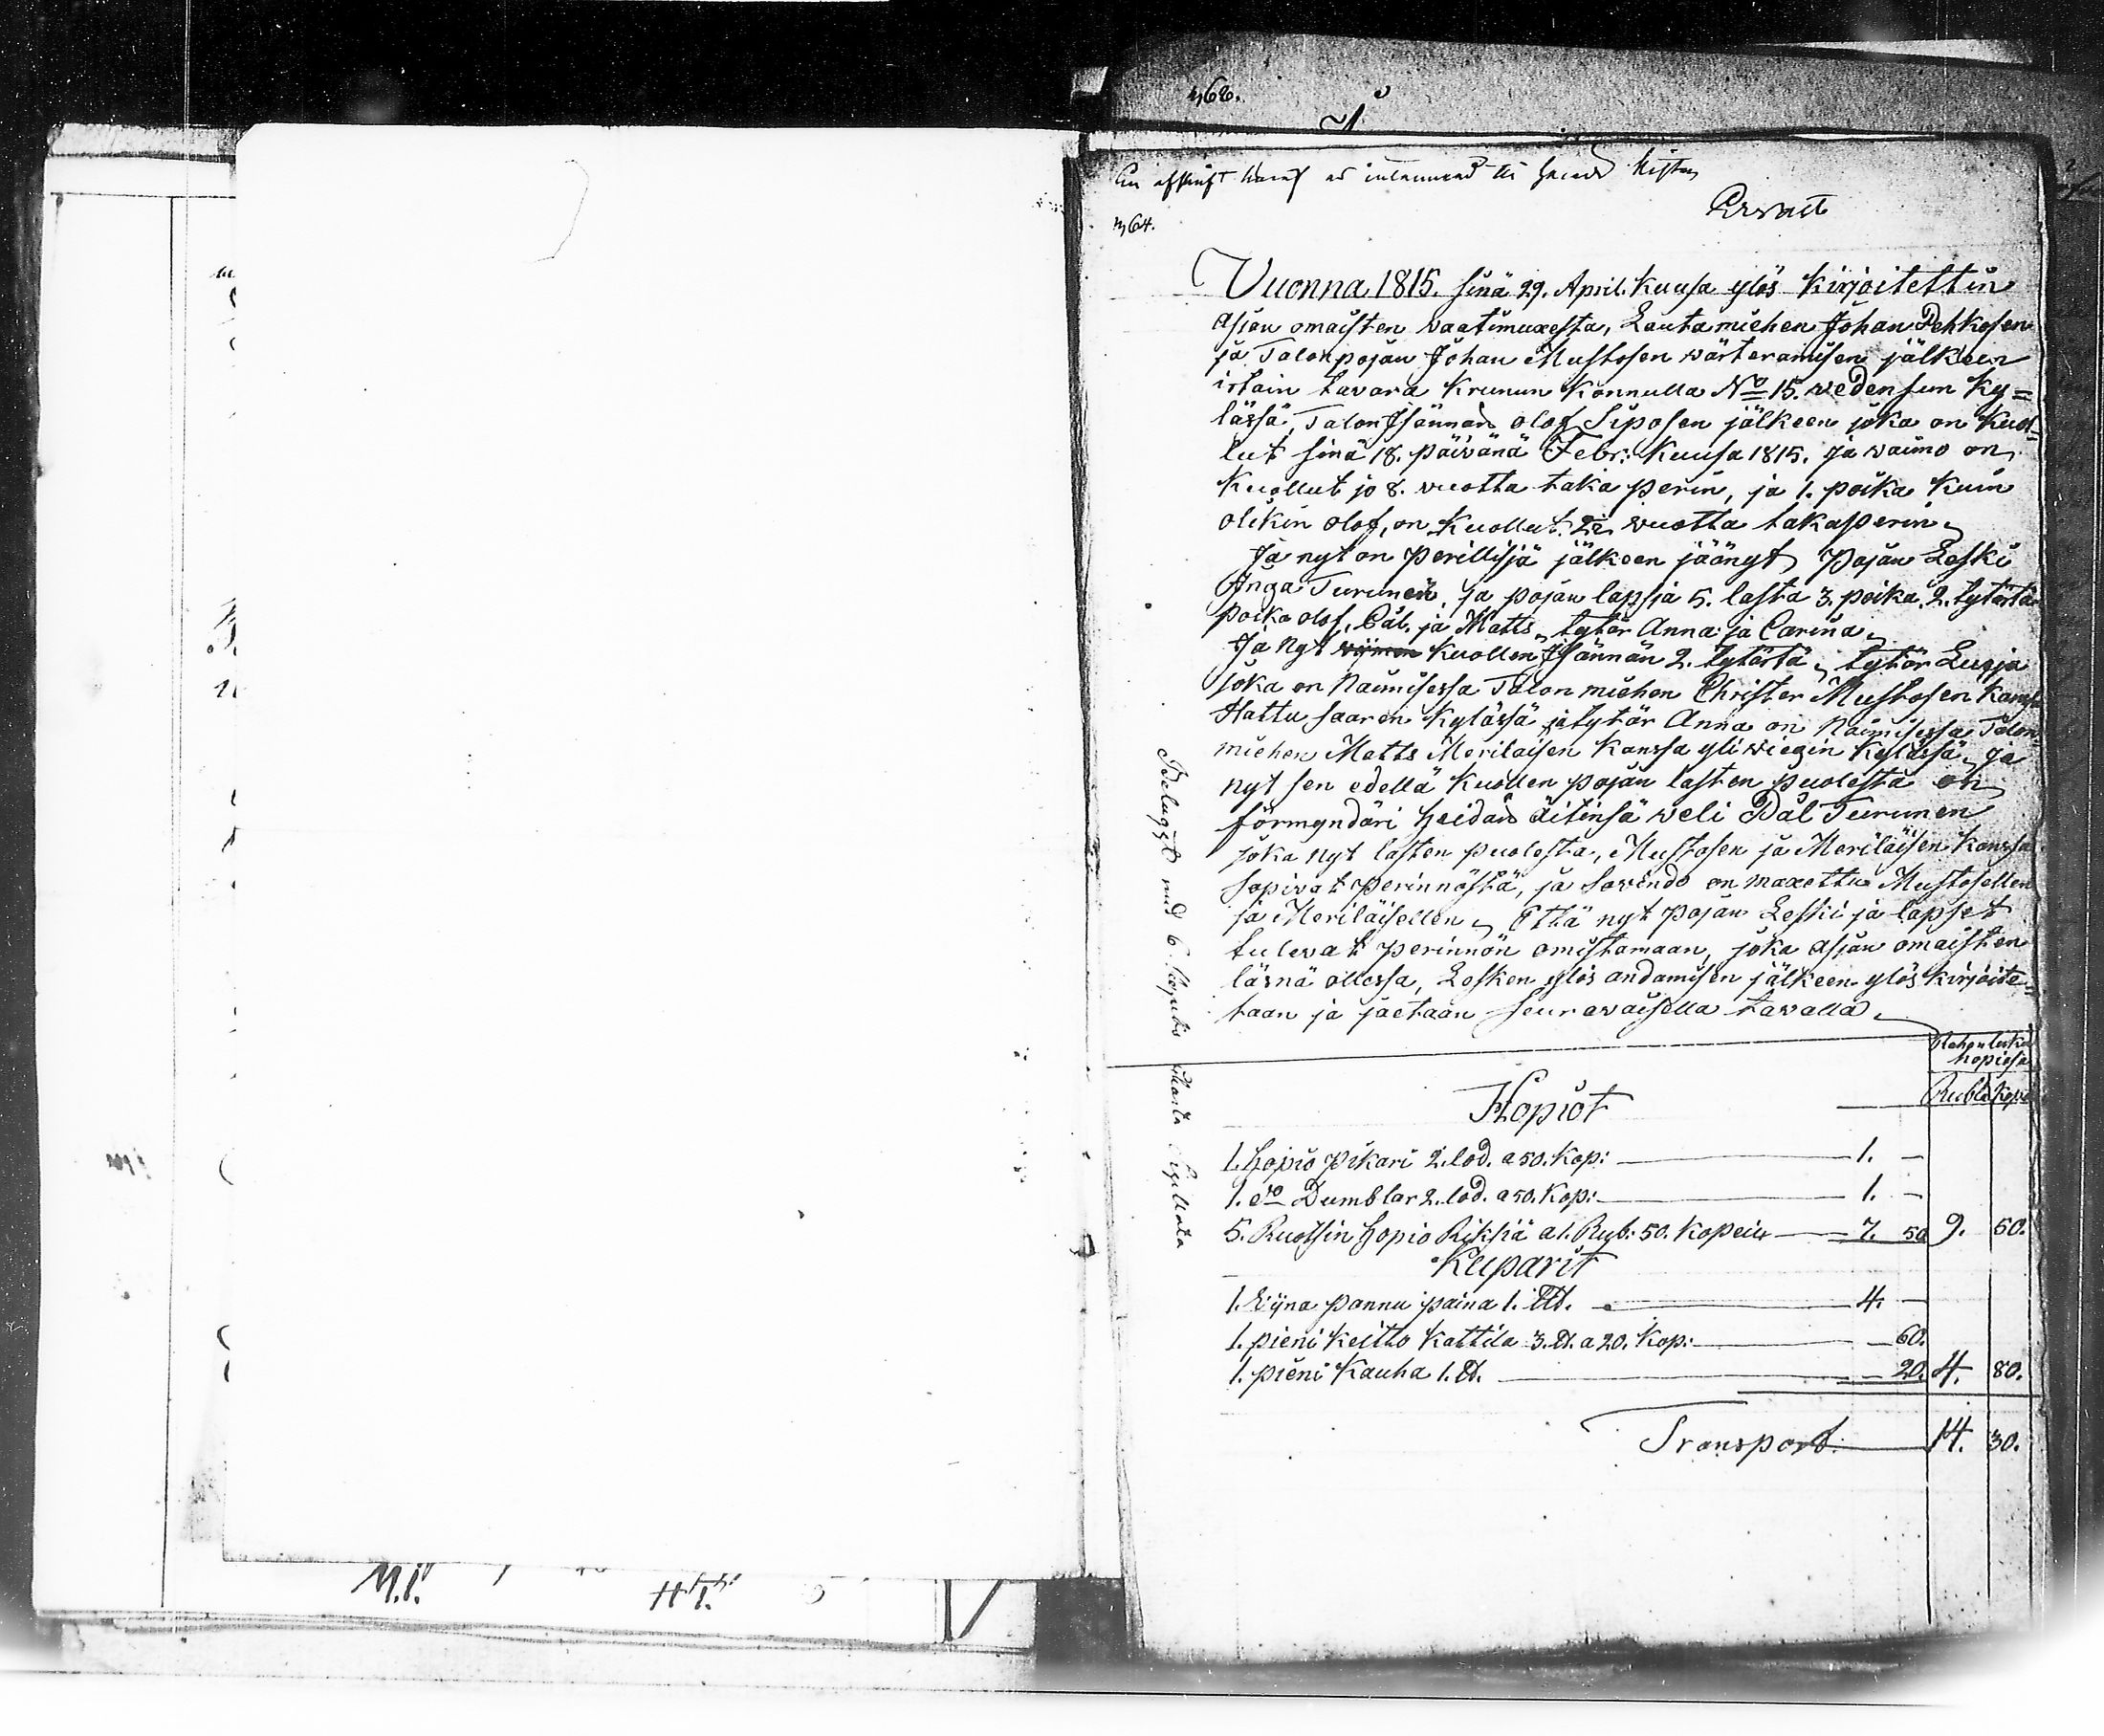 364.
Vuonna 1815. sinä 29. April. Kuusa ylös Kirjoitettin
asian omaisten vaatimuxesta, Lautamiehen Johan Pehkosen
ja Talonpojan Johan Mustosen wärteramisen jälkeen
irtain tavara Krunun Konnulla No 15. vedensun Ky=
lässä, Talon Isännän Olof Siposen jälkeen joka on Kuol=
lut sinä 18. päivänä Febr: Kuusa 1815. ja waimo on
Kuollut jo 8. vuotta taka perin, ja 1. poika Kuin
olikin Olof, on Kuollut 2 vuotta takaperin
Ja nyt on Perillisiä jälkeen jäänyt Pojan Leski
Inga Turunen, ja pojan lapsia 5. lasta 3. poika, 2. tytärtä
poika Olof, Pål. ja Matts, tytär Anna ja Carina,
Ja Nyt wijmen Kuollen Isännän 2. tytärtä, tytär Lusja
joka on Naimisessa Talon miehen Christer Mustosen Kanssa
Hattu saaren Kylässä ja tytär Anna on Naimisessa Talon=
miehen Matts Meriläisen Kanssa yli wiexin Kylässä, ja
nyt sen edellä Kuollen pojan lasten puolesta on
förmyndäri heidän äitinsä weli Pål Turunen
joka nyt lasten puolesta, Mustosen ja Meriläisen Kanssa
Sopivat perinnöstä, ja Sovindo on maxettu Mustosellen
ja Meriläisellen, Että nyt Pojan Leski ja lapset
tulevat Perinnön omistamaan, joka asian omaisten
läsnä ollessa, Lesken ylös andamisen jälkeen ylös kirjoite=
taan ja jaetaan seurawaisella tavalla,
hopiasa
Rubl. Kop:
Hopiot
1. hopio pikari 2. lod. a 50. Kop: 1. -
1. do Dumblar 2. lod. a 50. Kop: 1. -
5. Ruotsin hopio Rikhiä a 1. Rub: 50. Kopeiw 7. 50 9. 50.
Kuparit
1. Wijna pannu paina 1. L℔. 4. -
1. pieni Keitto Kattila 3. ℔. a 20. Kop: - 60.
1. pieni Kauha 1. ℔. - 20. 4. 80.
Transport 14. 30.